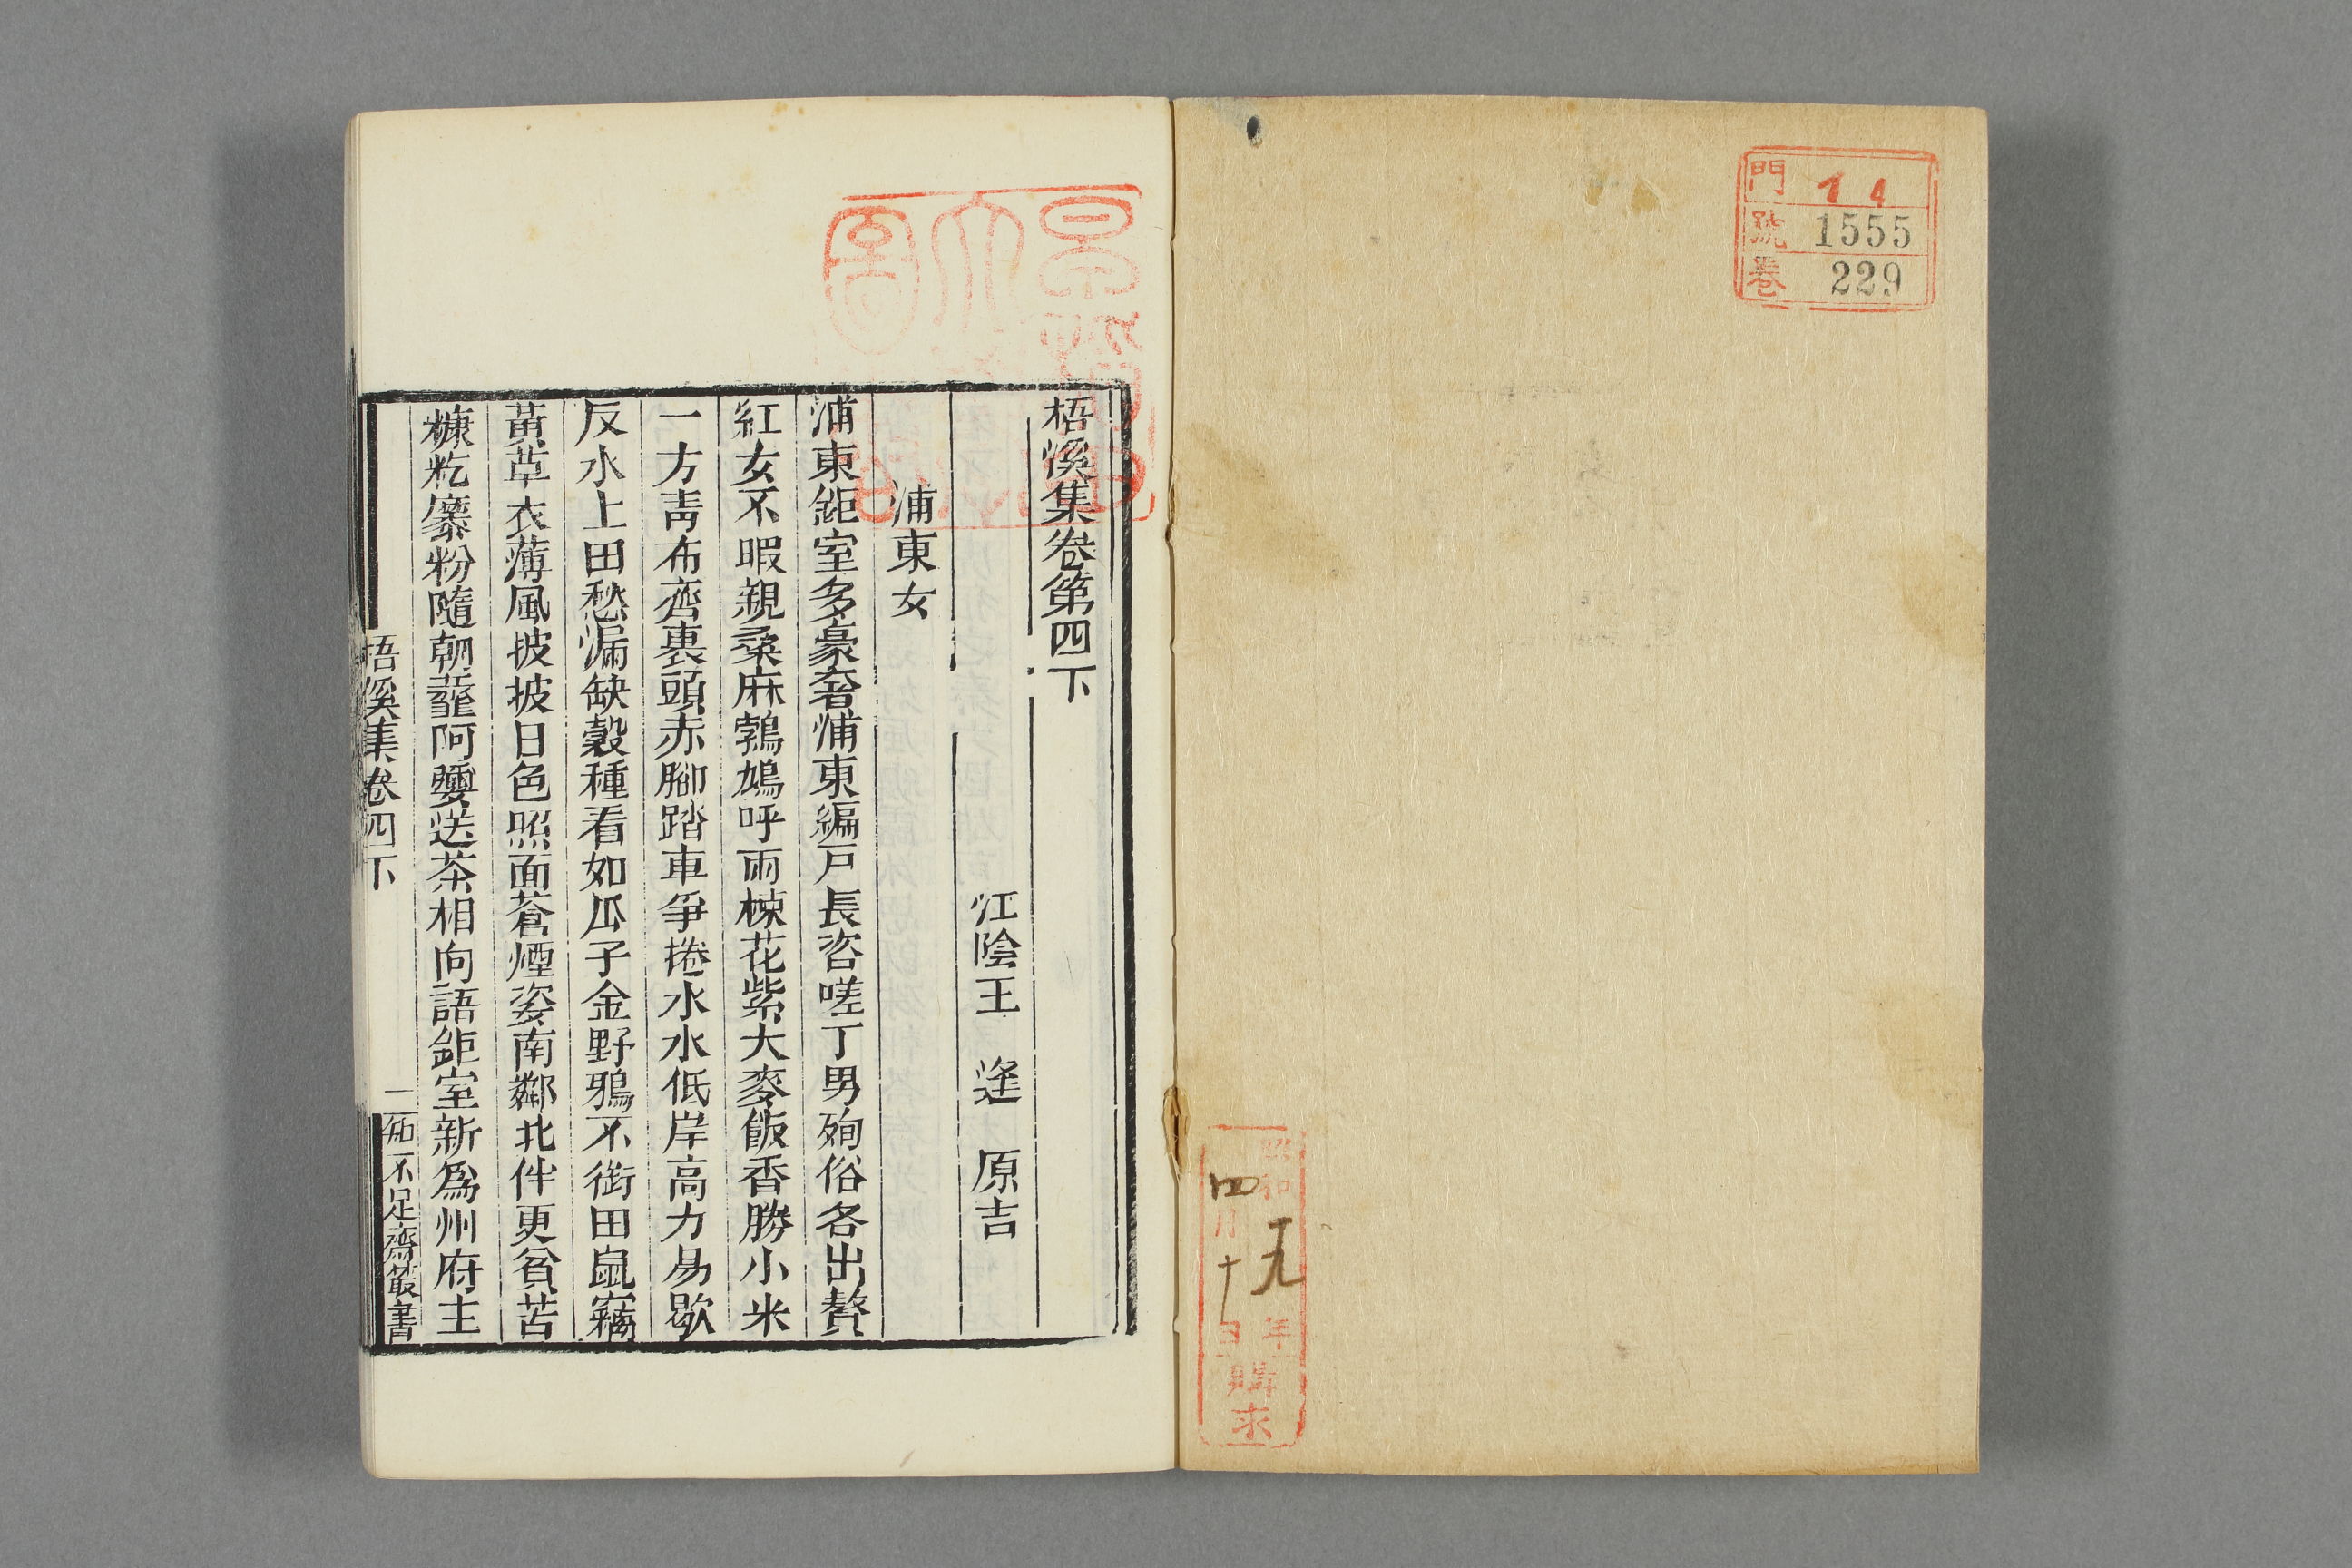 門 14
號 1555
卷 229
昭和
十九年
四月十日
購求
梧溪集卷第四下
江陰王逢原吉
浦東女
浦東鉅室多豪奢浦東編戸長咨嗟丁男殉俗各出贅
紅女不暇親桑麻鵓鳩呼雨楝花紫大麥飯香勝小米
一方青布齊裹頭赤腳踏車爭捲水水低岸高力易歇
反水上田愁漏缺穀種看如瓜子金野鴉不銜田鼠竊
黃草衣薄風披披日色照面蒼煙姿南鄰北伴更貧苦
糠籺縻粉隨朝虀阿㜷送茶相向語鉅室新為州府主
梧溪集卷四下
一
知不足齋叢書